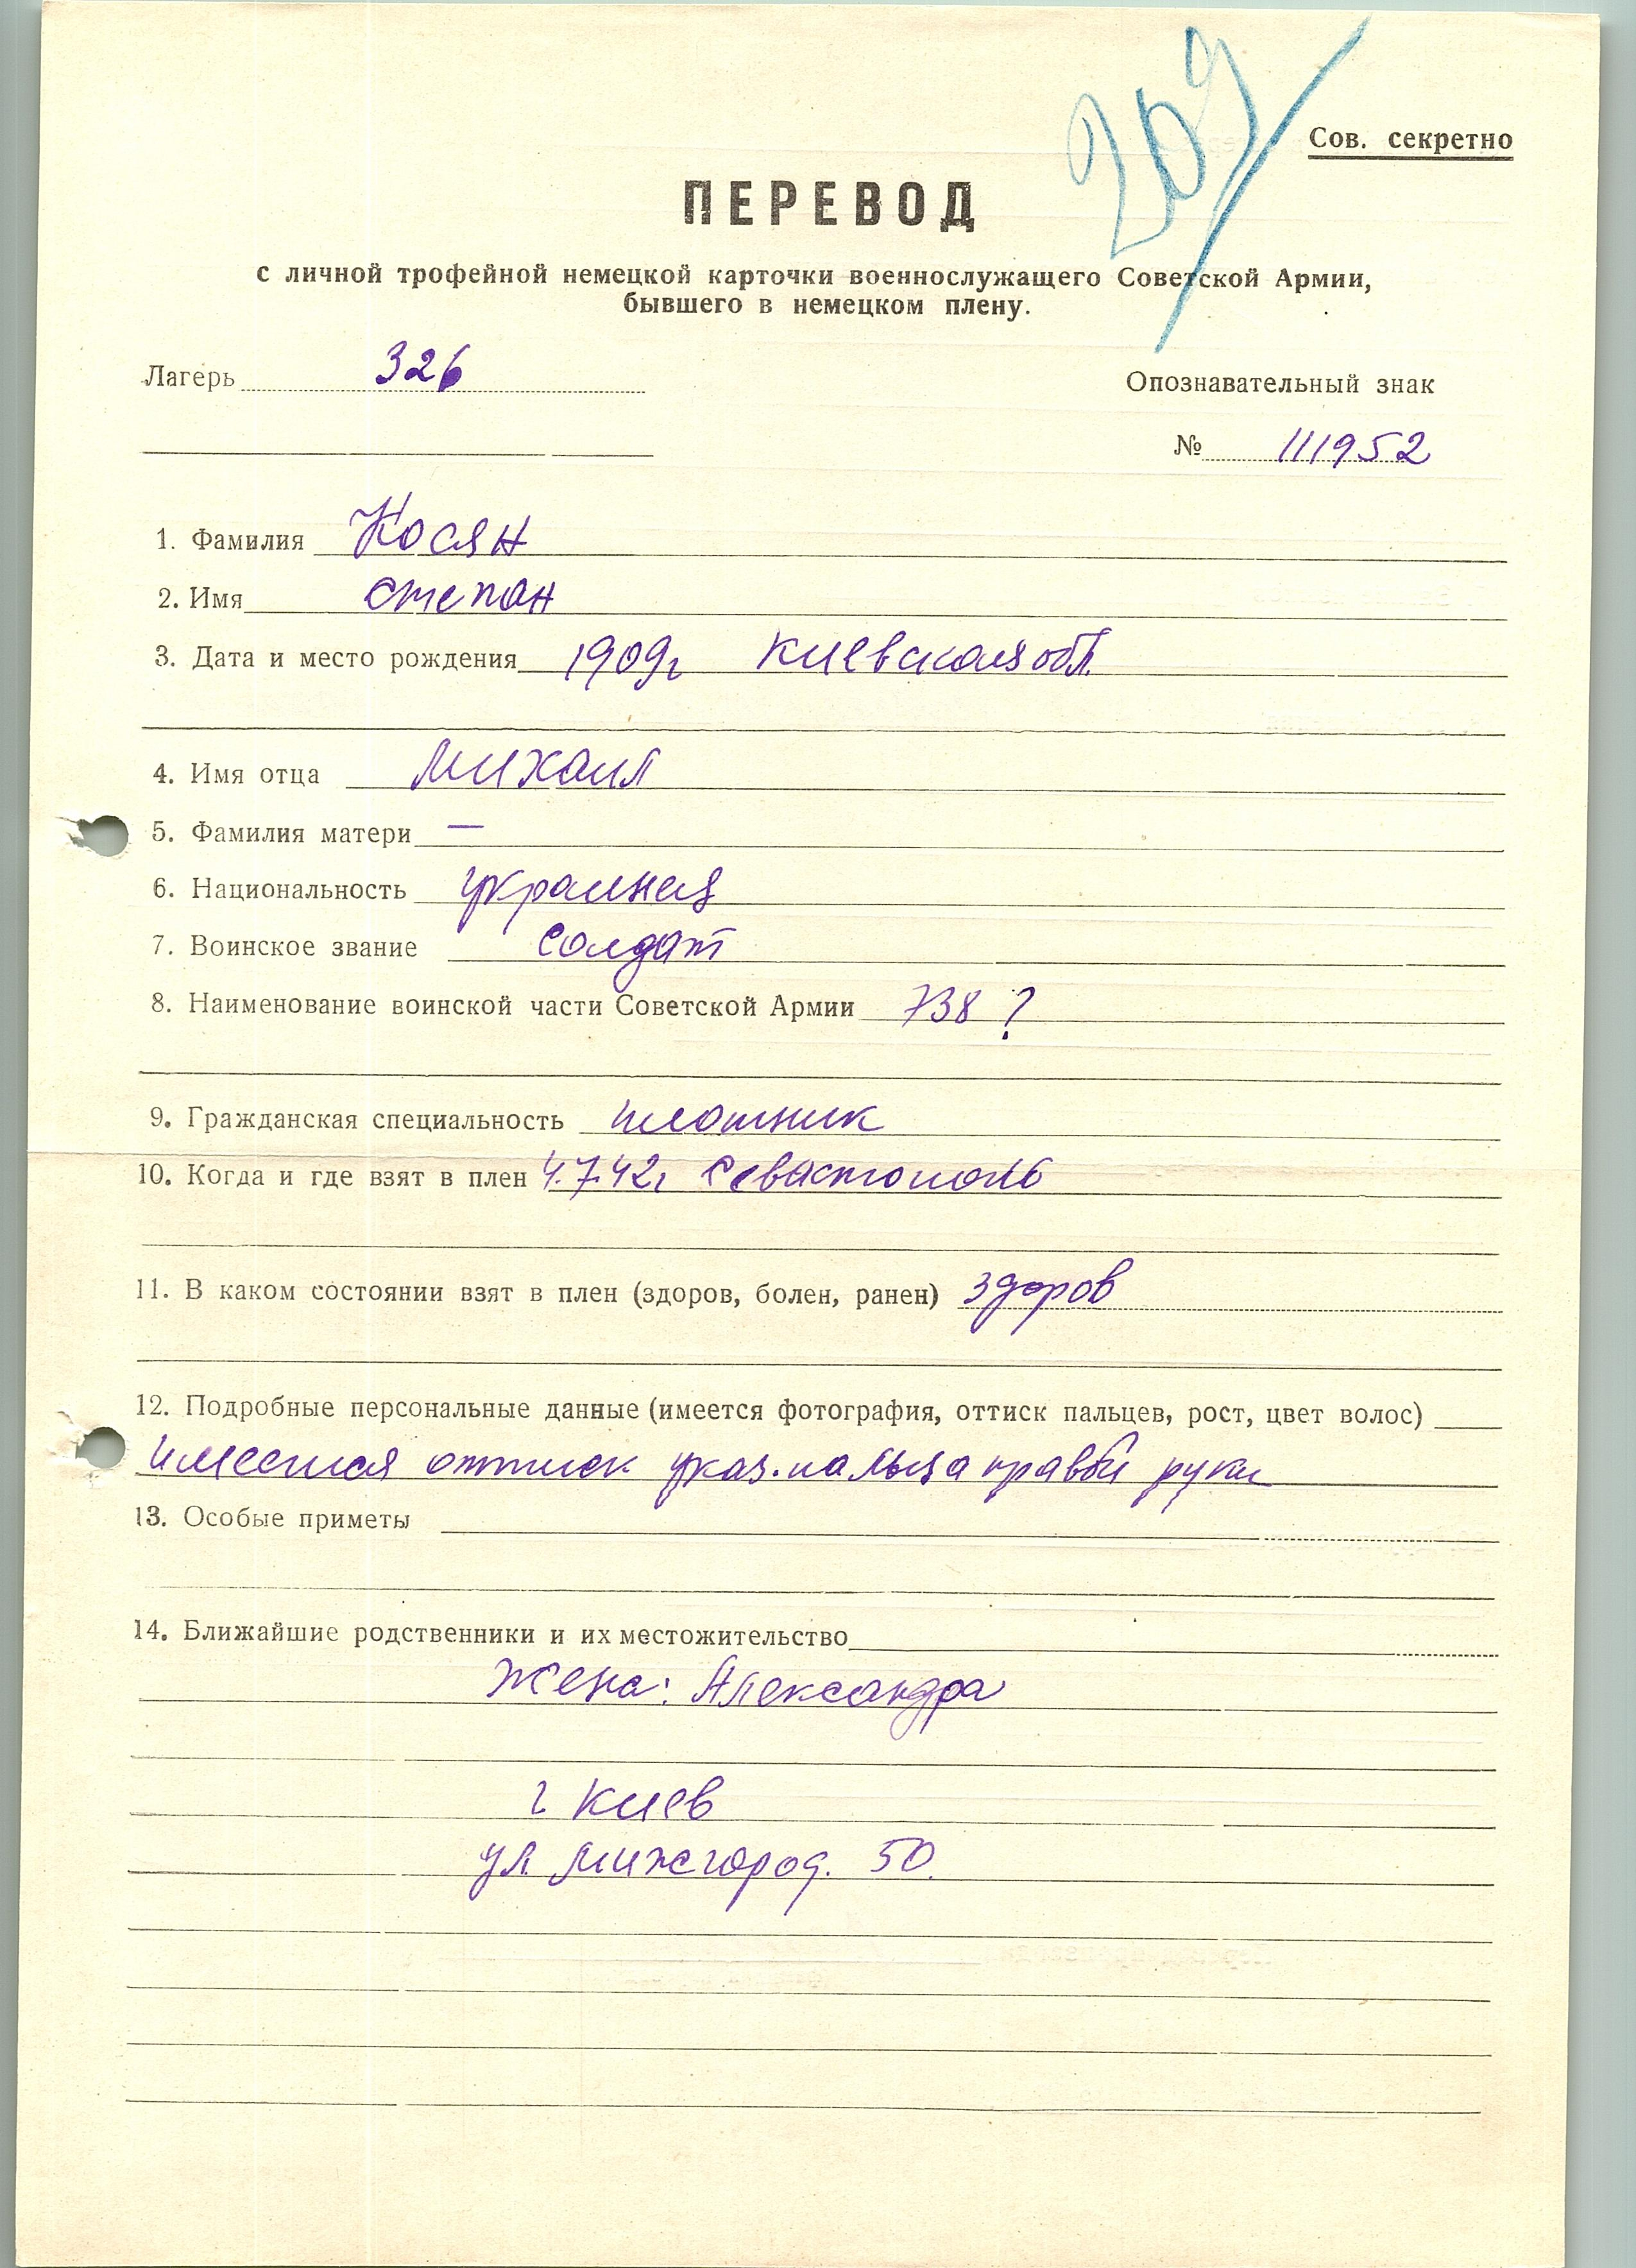 209
Сов. секретно
ПЕРЕВОД
с личной трофейной немецкой карточки военнослужащего Советской Армии,
бывшего в немецком плену.
Лагерь 326
Опознавательный знак
№ 111952
1. Фамилия Косян
2. Имя Степан
3. Дата и место рождения 1909г Киевская обл.
4. Имя отца Михаил
5. Фамилия матери —
6. Национальность
7. Воинское звание солдат
8. Наименование воинской части Советской Армии 738 ?
9. Гражданская специальность плотник
10. Когда и где взят в плен 4.7.42г Севастополь
11. В каком состоянии взят в плен (здоров, болен, ранен) здоров
12. Подробные персональные данные (имеется фотография, оттиск пальцев, рост, цвет волос)
имеется оттиск указ. пальца правой руки
13. Особые приметы
14. Ближайшие родственники и их местожительство
Жена: Александра
г Киев
ул. Мижгород. 50.